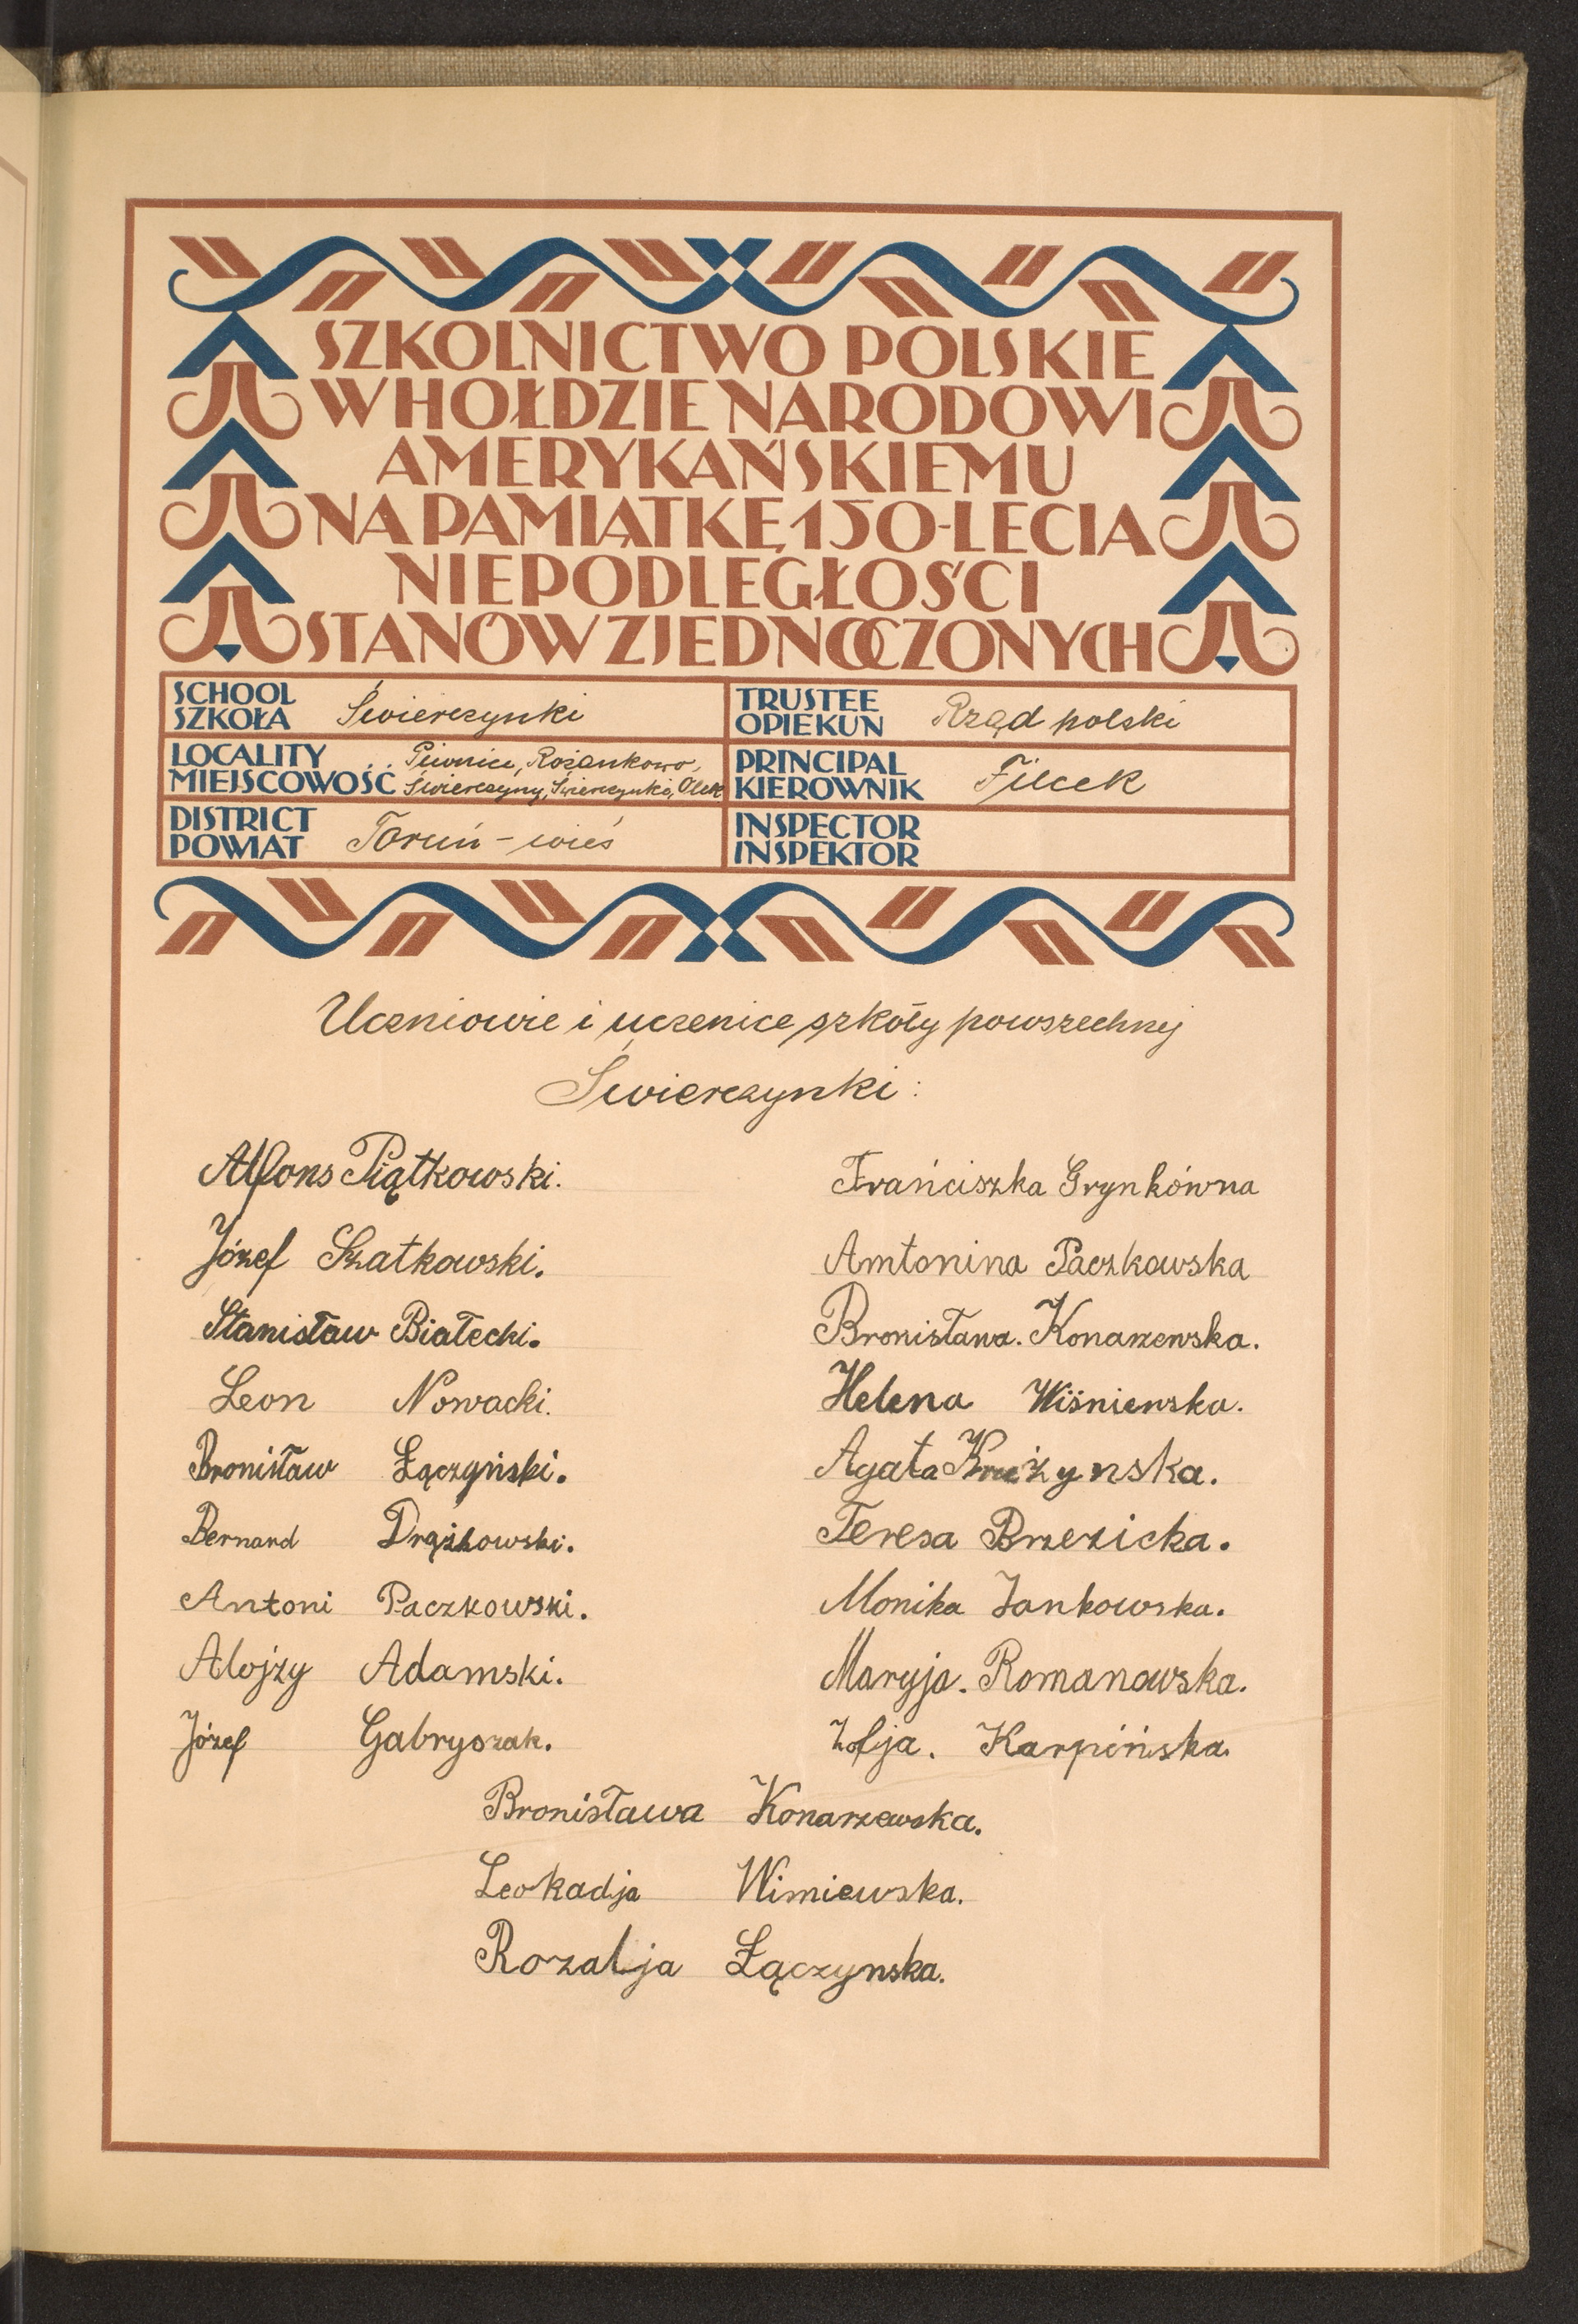 SZKOLNICTWO POLSKIE
W HOŁDZIE NARODOWI
AMERYKAŃSKIEMU
NA PAMIĄTKĘ 150-LECIA
NIEPODLEGŁOŚCI
STANÓW ZJEDNOCZONYCH
SCHOOL
SZKOŁA Świerczynki
TRUSTEE
OPIEKUN Rząd polski
LOCALITY Piwnice, Rożankowo,
MIEJSCOWOŚĆ Świerczyny, Świerczynko, Olek
PRINCIPAL
KIEROWNIK Filcek
DISTRICT
POWIAT Toruń - wieś
INSPECTOR
INSPEKTOR
Uczniowie i uczenice szkoły powszechnej
Świerczynki:
Alfons Piątkowski.
Józef Szatkowski.
Stanisław Białecki.
Leon Nowacki.
Bronisław Łączyński.
Bernard Drążkowski.
Antoni Paczkowski.
Alojzy Adamski.
Józef Gabryszak.
Frańciszka Grynkówna
Amtonina Paczkowska
Bronisława. Konarzewska.
Helena Wiśniewska.
Agata Krużynska.
Teresa Brzezicka.
Monika Jankowska.
Maryja. Romanowska.
Zofja. Karpińska.
Bronisława Konarzewska.
Leokadja Wimiewska.
Rozalja Łączynska.